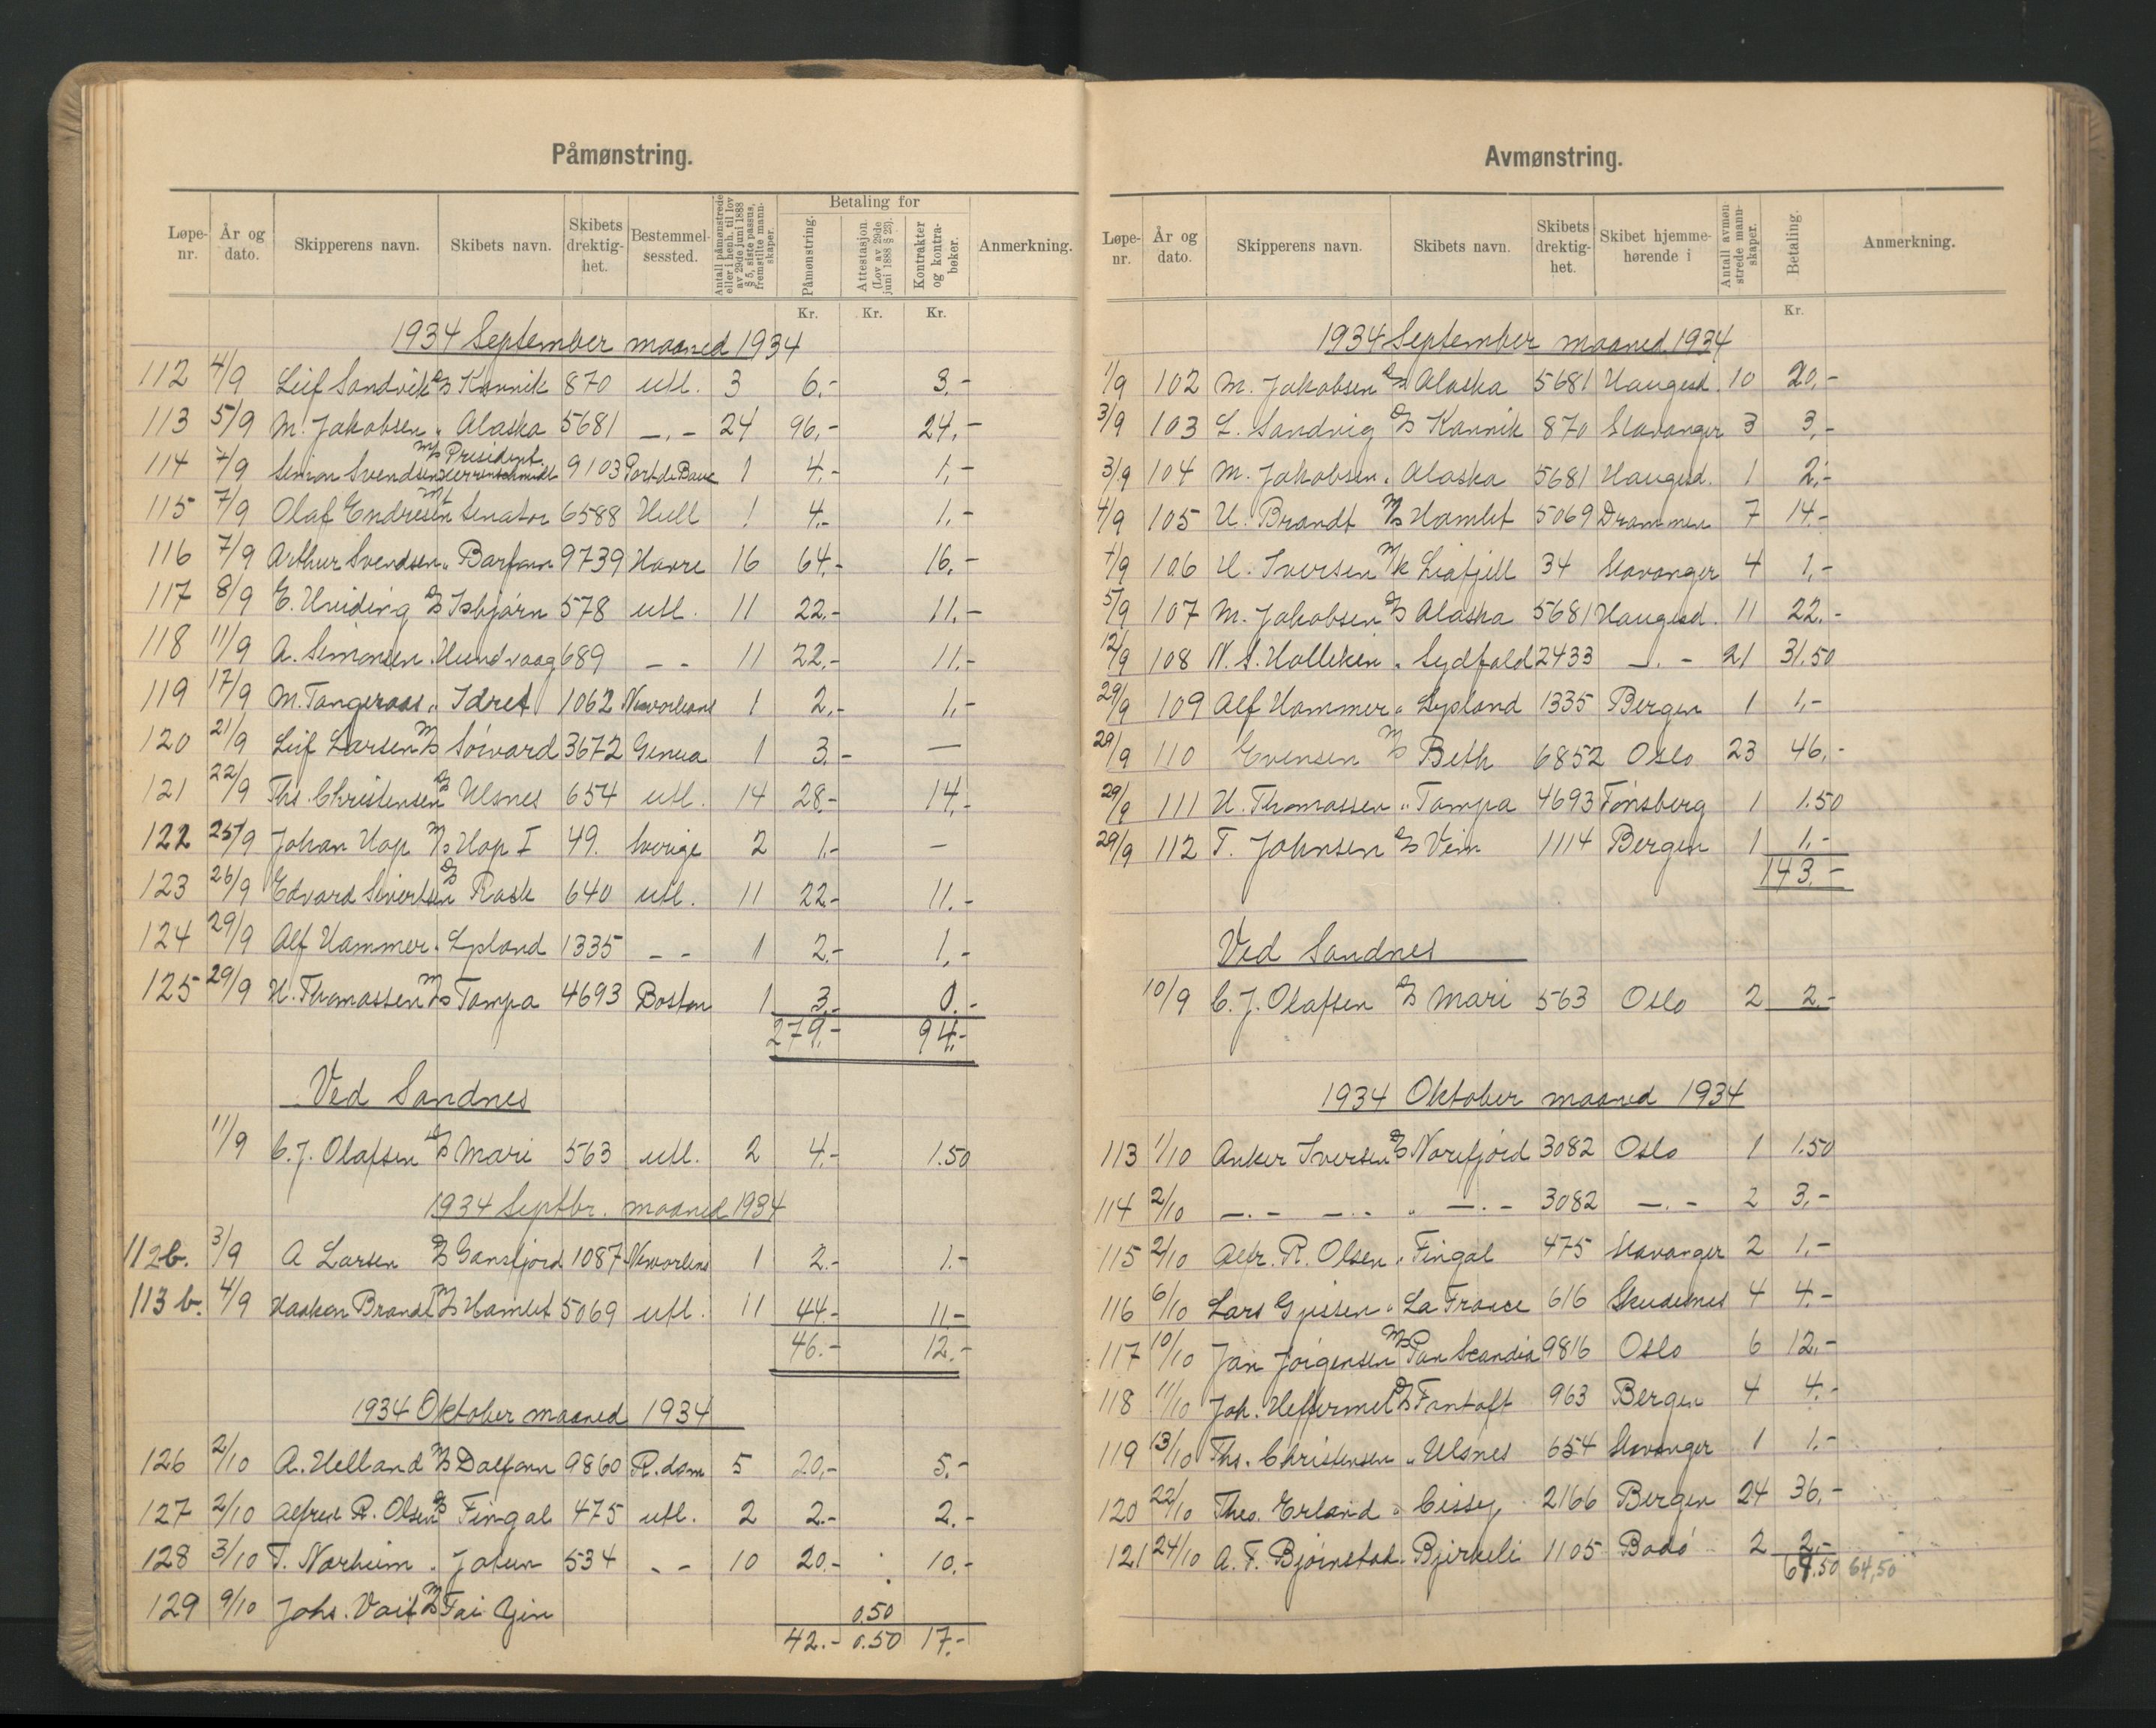 Påmønstring.
Løpe-nr. År og dato. Skipperens navn. Skibets navn. Skibets drektig-het. Bestemmel-sessted. Antall påmønstrede eller i henh. til lov av 29de juni 1888 § 5, siste passus, fremstilte mann-skaper. Betaling for Påmønstring. Attestasjon (Lov av 29de juni 1888 § 23). Kontrakter og kontra-bøker. Anmerkning.
Kr. Kr. Kr.
1934 September maaned 1934
112 4/9 Leif Sandvik D/S Kannik 870 utl. 3 6.- 3.-
113 5/9 M. Jakobsen " Alaska 5681 -.- 24 96.- 24.-
114 7/9 Simon Svendsen M/S President Herrenschmidt 9103 Port de Bouc 1 4.- 1.-
115 7/9 Olaf Endresen M/T Senator 6588 Hull 1 4.- 1.-
116 7/9 Arthur Svendsen " Barfonn 9739 Havre 16 64.- 16.-
117 8/9 E. Hviding D/S Isbjørn 578 utl. 11 22.- 11.-
118 11/9 A. Simonsen " Hundvaag 689 - - 11 22.- 11.-
119 17/9 M. Tangeraas " Idret 1062 Neworleans 1 2.- 1.-
120 21/9 Leif Larsen M/S Sørvard 3672 Genua 1 3.- —
121 22/9 Ths. Christensen D/S Ulsnes 654 utl. 14 28.- 14.-
122 25/9 Johan Hop M/S Hop I 49. Sverige 2 1.- -
123 26/9 Edvard Sivertsen D/S Rask 640 utl. 11 22.- 11.-
124 29/9 Alf Hammer " Lysland 1335 - - 1 2.- 1.-
125 29/9 H. Thomassen M/S Tampa 4693 Boston 1 3.- 0.-
279.- 94.-
Ved Sandnes
11/9 C. J. Olafsen D/S Mari 563 utl. 2 4.- 1.50
1934 Septbr. maaned 1934
112b. 3/9 A Larsen D/S Gansfjord 1087 Neworlens 1 2.- 1.-
113b. 4/9 Haakon Brandt M/S Hamlet 5069 utl. 11 44.- 11.-
46.- 12.-
1934 Oktober maaned 1934
126 2/10 A. Helland M/S Dalfonn 9860 R.dam 5 20.- 5.-
127 2/10 Alfred R. Olsen D/S Fingal 475 utl. 2 2.- 2.-
128 3/10 T. Norheim " Jotun 534 - - 10 20.- 10.-
129 9/10 Johs. Voit M/S Tai Yin 0.50
42.- 0.50 17.-
Avmønstring.
Løpe-nr. År og dato. Skipperens navn. Skibets navn. Skibets drektig-het. Skibet hjemme-hørende i Antall avmøn strede mann-skaper. Betaling. Anmerkning.
Kr.
1934 September maaned 1934
1/9 102 M. Jakobsen D/S Alaska 5681 Haugesd. 10 20.-
3/9 103 L. Sandvig D/S Kannik 870 Stavanger 3 3.-
3/9 104 M. Jakobsen " Alaska 5681 Haugesd. 1 2.-
4/9 105 H. Brandt M/S Hamlet 5069 Drammen 7 14.-
4/9 106 H. Iversen M/k Liafjell 34 Stavanger 4 1.-
5/9 107 M. Jakobsen D/S Alaska 5681 Haugesd. 11 22.-
12/9 108 N. S. Halleken " Sydfold 2433 -.- 21 31.50
29/9 109 Alf Hammer " Lysland 1335 Bergen 1 1.-
29/9 110 Evensen M/S Beth 6852 Oslo 23 46.-
29/9 111 H. Thomassen " Tampa 4693 Tønsberg 1 1.50
29/9 112 T. Johnsen D/S Veni 1114 Bergen 1 1.-
143.-
Ved Sandnes
10/9 C. J. Olafsen D/S Mari 563 Oslo 2 2.-
1934 Oktober maaned 1934
113 1/10 Anker Iversen D/S Norefjord 3082 Oslo 1 1.50
114 2/10 -.- -.- " -.- 3082 -.- 2 3.-
115 2/10 Alfr. R. Olsen " Fingal 475 Stavanger 2 1.-
116 6/10 Lars Gjessen " La France 616 Skudesnes 4 4.-
117 10/10 Jan Jørgensen M/S Pan Scandia 9816 Oslo 6 12.-
118 11/10 Joh. Heffermel D/S Fantoft 963 Bergen 4 4.-
119 13/10 Ths. Christensen " Ulsnes 654 Stavanger 1 1.-
120 22/10 Theo. Erland " Cissy 2166 Bergen 24 36.-
121 24/10 A. F. Bjørnstad " Bjerkeli 1105 Bodø 2 2.-
64.50 64,50